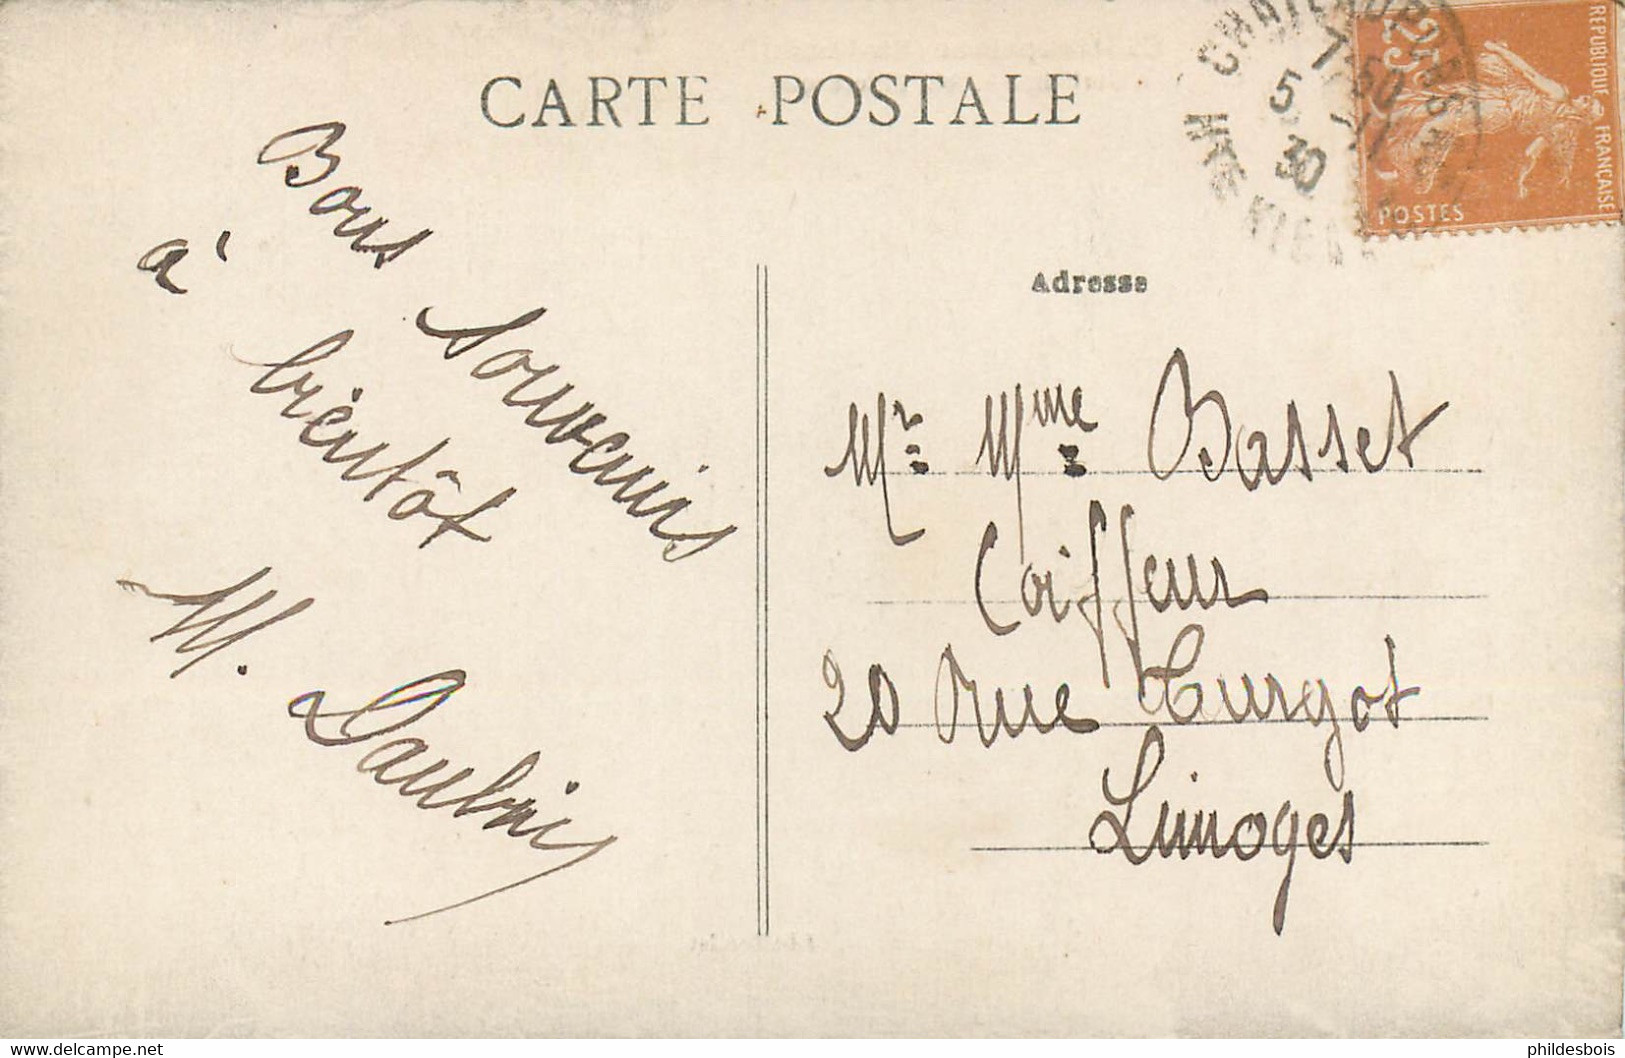 CARTE POSTALE
Bons Souvenirs
à bientôt
M.
Adresse
Mr Mme Basset
Coiffeur
20 Rue Turgot
Limoges
REPUBLIQUE FRANÇAISE
25
POSTES
7 50
5
30
Hte VIENNE
Mes photos sur www.delcampe.net
phildesbois